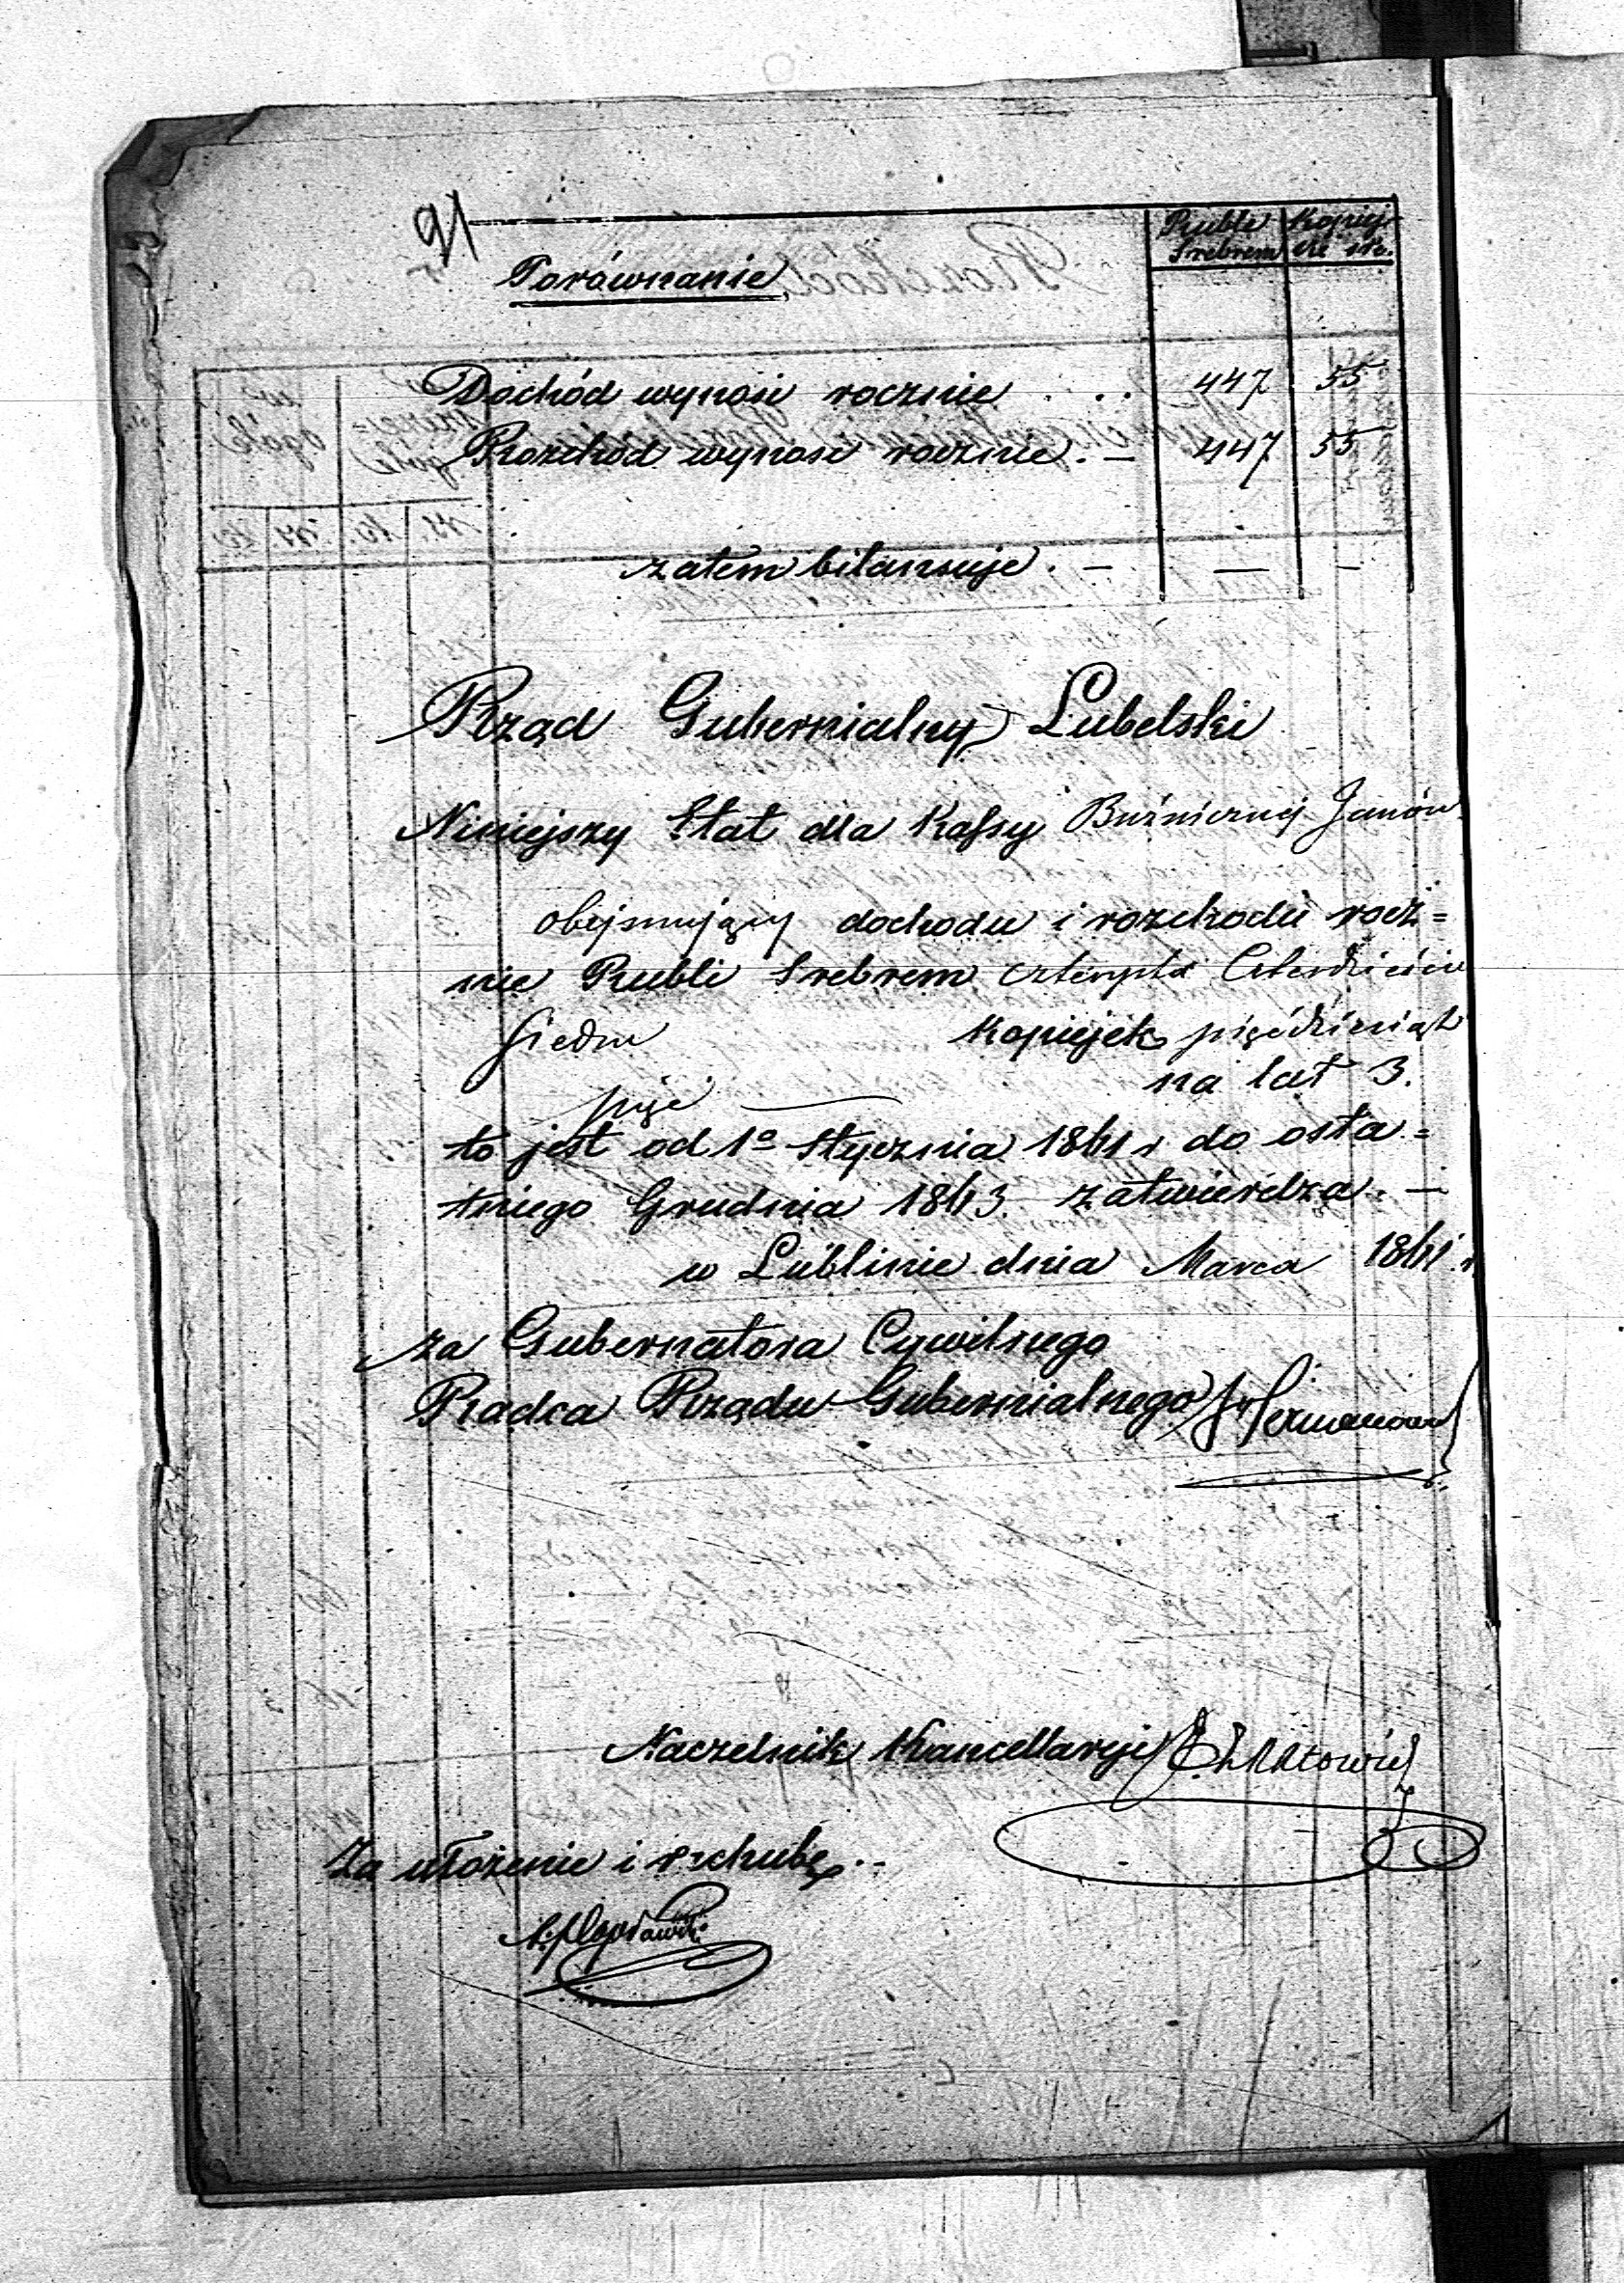 91
Rubli Kopiej-
Srebrem ki sre.
Porównanie,
Dochód wynosi rocznie . . . 447 55
Rozchód wynosi rocznie . — 447 55
zatem bilansuje . — — —
Rząd Gubernialny Lubelski
Niniejszy Etat dla Kassy Buźnicznej Janów
obejmujący dochodu i rozchodu rocz=
nie Rubli Srebrem czterysta Czterdzieści
siedm Kopiejek pięćdziesiąt
pięć — na lat 3.
to jest od 1o Stycznia 1861 r do osta=
tniego Grudnia 1863. zatwierdza. —
w Lublinie dnia Marca 1861 r.
za Gubernatora Cywilnego
Radca Rządu Gubernialnego
Naczelnik Kancellaryi
Za ułożenie i rachubę . -